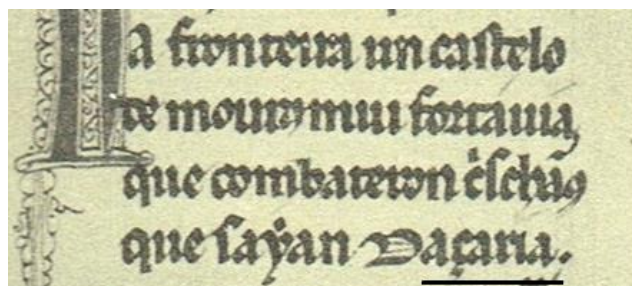 Na fronteira un castelo
de mouros mui fortauia,
que combateron cͥschãꝯ
que saẏan Daçaria.